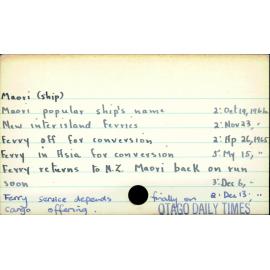 Maori (ship)
Maori popular ship's name 2: Oct 19, 1964
New inter island Ferries 2: Nov 23, "
Ferry off for conversion 2: Ap 26, 1965
Ferry in Asia for conversion 5: My 15, "
Ferry returns to N.Z. Maori back on run
soon 3: Dec 6, "
Ferry service depends finally on 2: Dec 13. "
cargo offering.
OTAGO DAILY TIMES